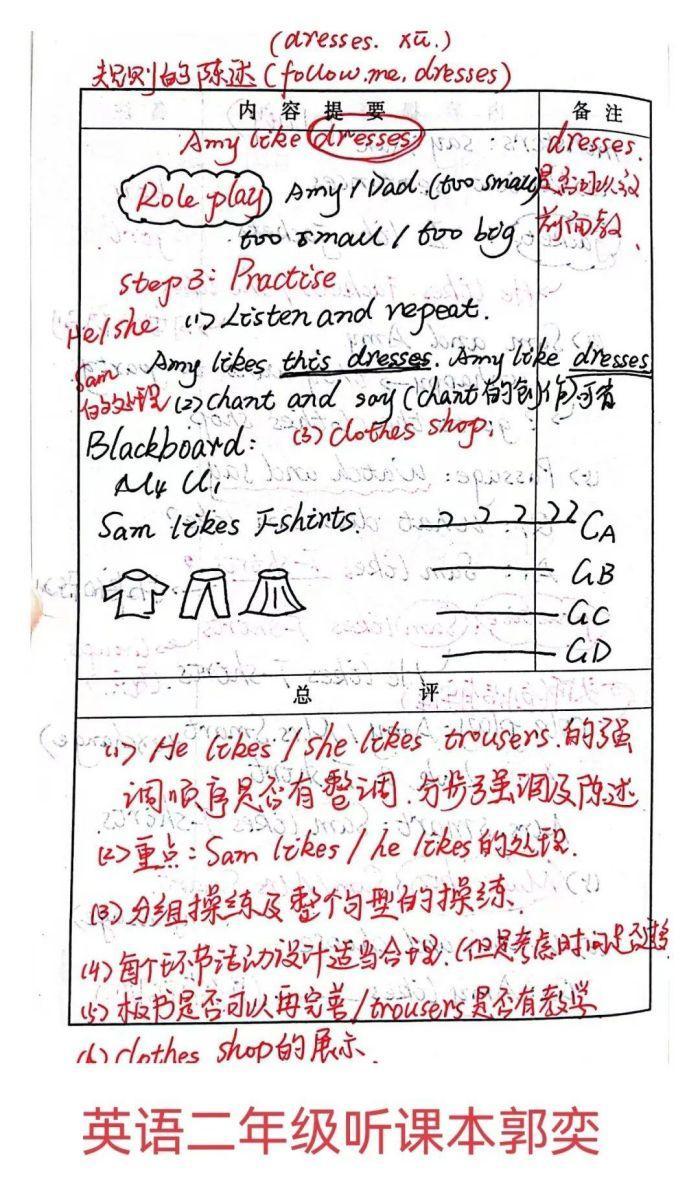 (dresses. xū.)
规则的陈述(follow me, dresses)
内容提要 备注
Amy like dresses. dresses.
Role play Amy/Dad.(too small) 是否可以放
too small / too big 前面教.
step 3: Practise
He/she (1) Listen and repeat.
Sam Amy likes this dresses. Amy like dresses
的处理 (2) chant and say (chant的创作)可有
Blackboard: (3) clothes shop.
M4 U1
Sam likes T-shirts. GA
GB
GC
GD
总评
(1) He likes / she likes trousers.的强
调顺序是否有整调.分步强调及陈述
(2)重点:Sam likes / he likes的处理.
(3)分组操练及整个句型的操练.
(4)每个环节活动设计适当合理.(但是考虑时间是否
(5)板书是否可以再完善/trousers是否有教学
(6) clothes shop的展示.
英语二年级听课本郭奕